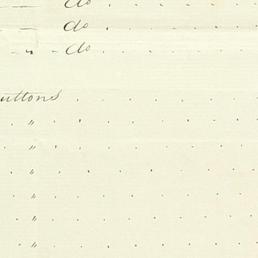 — do . . . . . . .
— do . . . . . . .
— " — do . . . . . . .
uttons . . . . . . . .
. " . . . . . . . .
. " . . . . . . . .
. " . . . . . . . .
. " . . . . . . . .
. " . . . . . . . .
. " . . . . . . . .